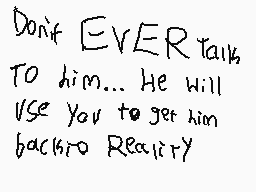 Don't EVER Talk
TO him... He will
use you to get him
back to Reality